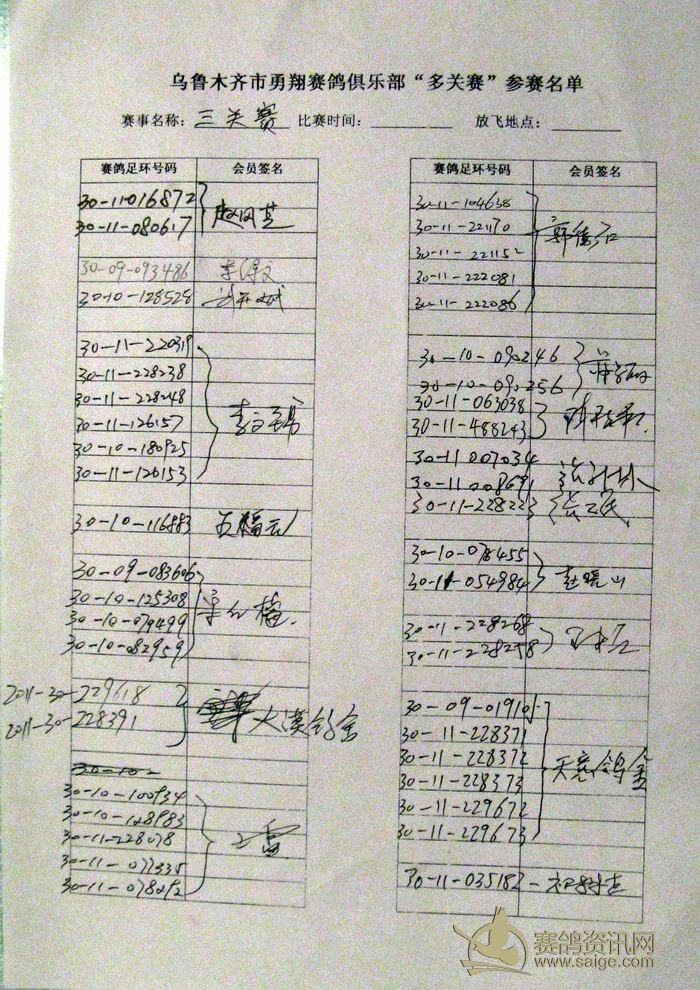 乌鲁木齐市勇翔赛鸽俱乐部“多关赛”参赛名单
赛事名称：三关赛 比赛时间： 放飞地点：
赛鸽足环号码 会员签名
30-11016872
30-11-080617
30-09-093486
30-10-128528
30-11-220319
30-11-228238
30-11-228248
30-11-126157
30-10-180925
30-11-126153
30-10-116883 王福元
30-09-083606
30-10-125308
30-10-079499
30-10-082959
2011-30-229618
2011-30-228391 大漠鸽舍
30-10-100934
30-10-128983
30-11-228078 王雷
30-11-077335
30-11-078092
赛鸽足环号码 会员签名
30-11-104638
30-11-221170
30-11-221152
30-11-222081
30-11-222086
30-10-090246
30-10-090256
30-11-063038
30-11-488243
30-11 007034
30-11 008691
30-11-22822
30-10-078455
30-11 054984 赵晓山
30-11-228268
30-11-228258
30-09-01910
30-11-228371
30-11-228372
30-11-228373 天亮鸽舍
30-11-229672
30-11-229673
30-11-035182
赛鸽资讯网
www.saige.com